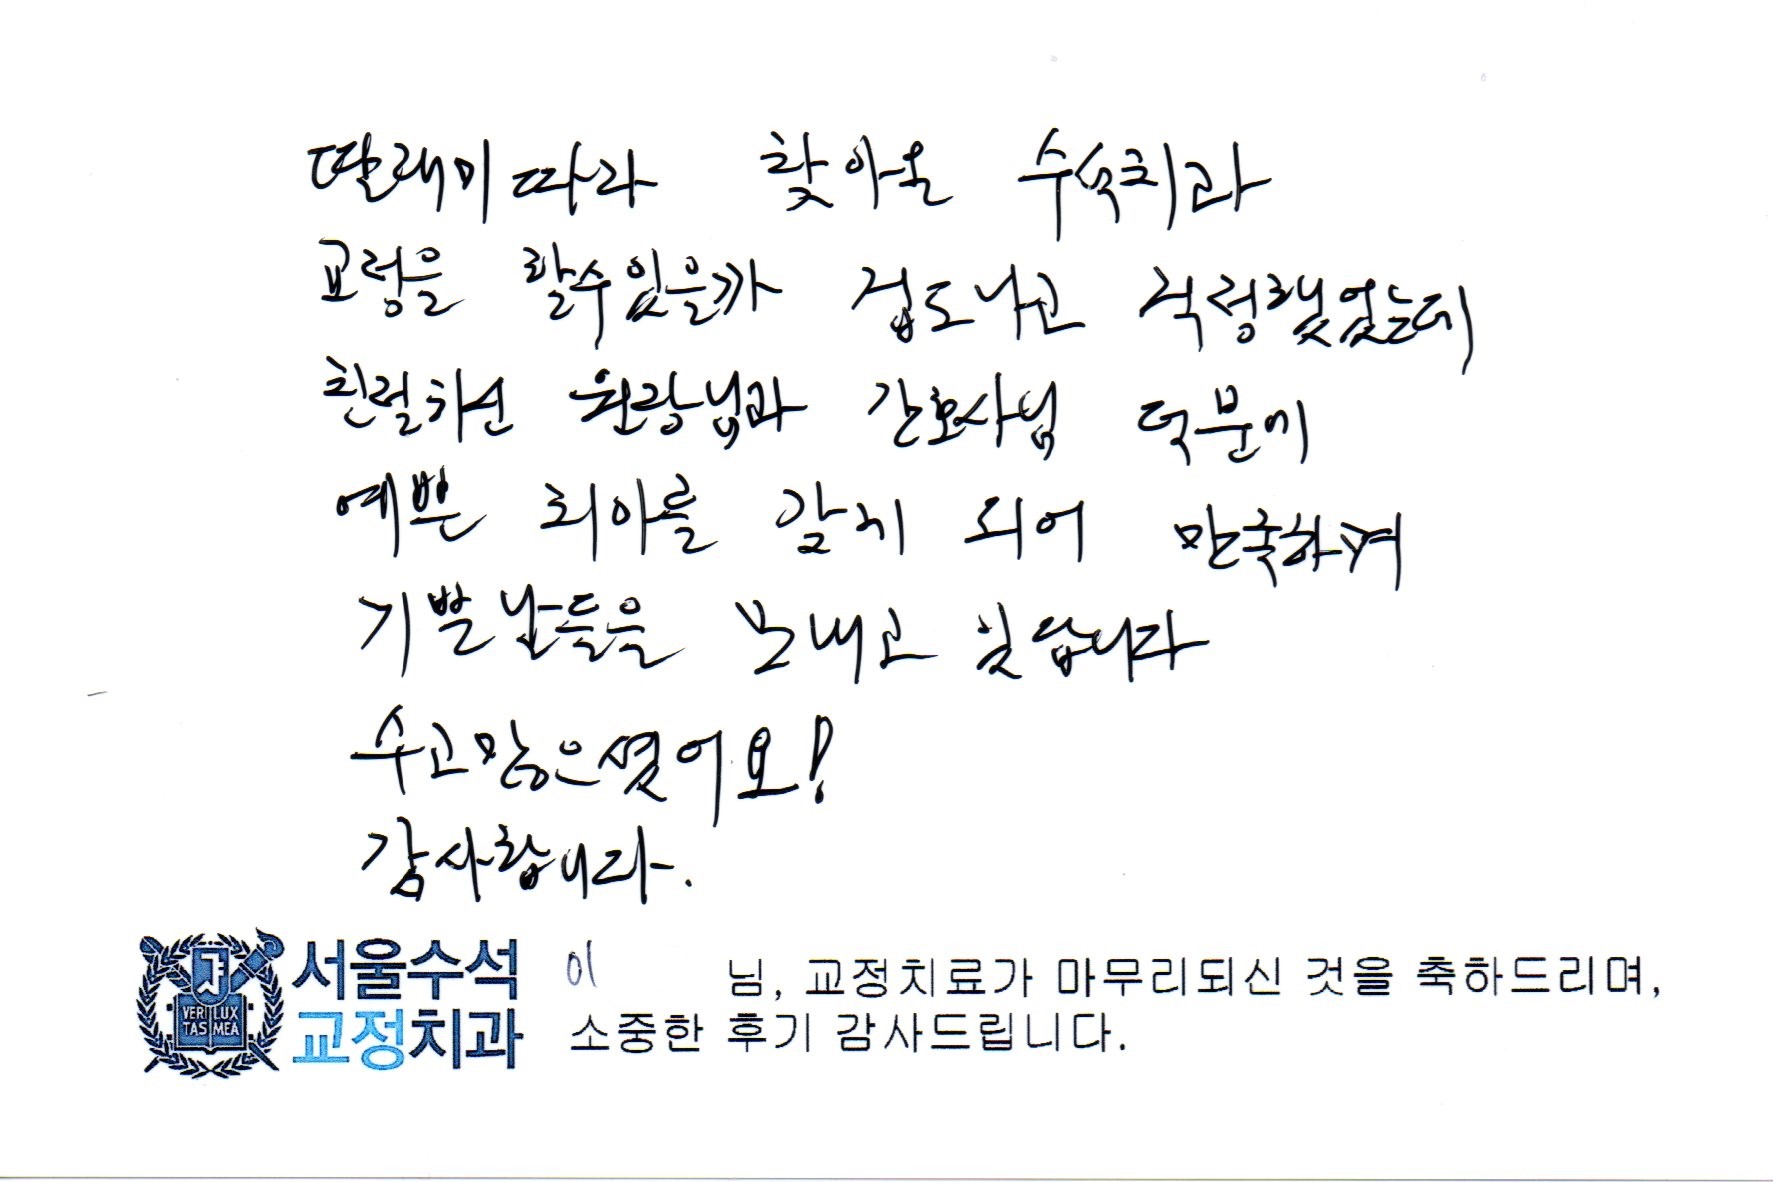 딸래미 따라 찾아온 수석치과
교정을 할수있을까 겁도나고 걱정했었는데
친절하신 원장님과 간호사님 덕분에
예쁜 치아를 갖게 되어 만족하며
기쁜 날들을 보내고 있답니다
수고많으셨어요!
감사합니다.
서울수석
교정치과
VERI LUX
TAS MEA
이 님, 교정치료가 마무리되신 것을 축하드리며,
소중한 후기 감사드립니다.